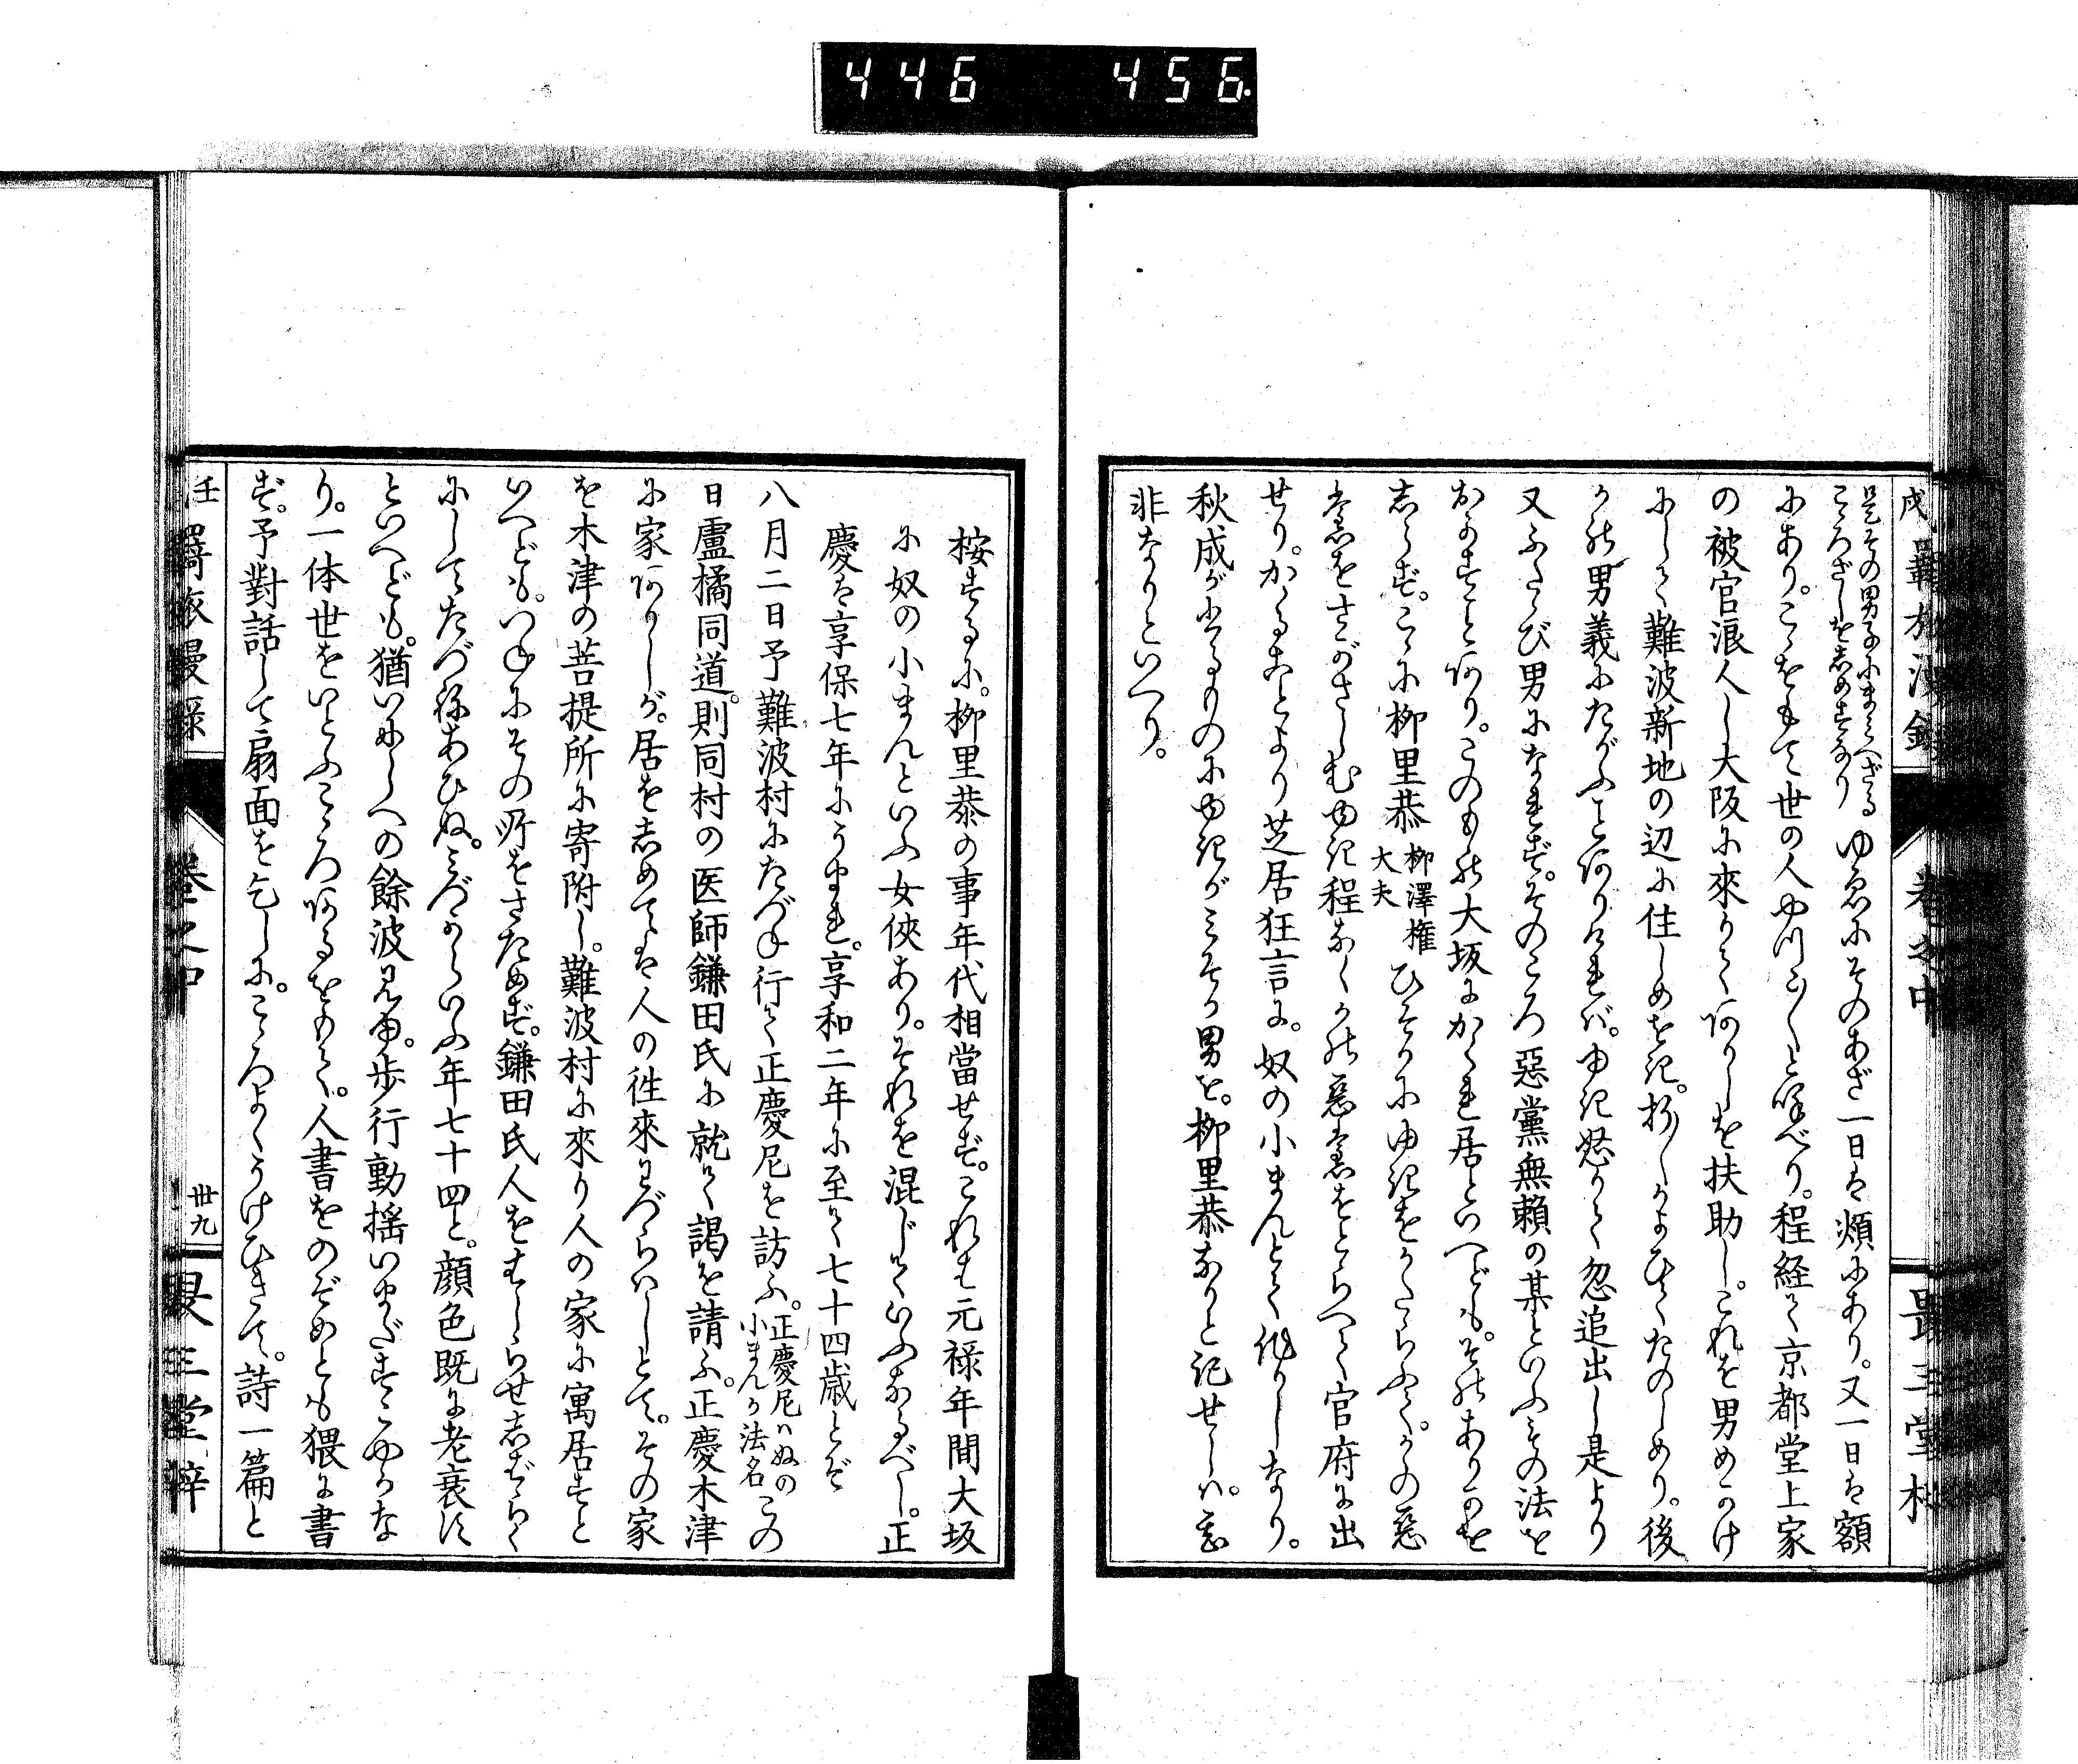 446 456
是その男子にまみへざる
こゝろざしをしめすなり
ゆゑにそのあざ一日は頬にあり。又一日は額
にあり。こゝをもて世の人やつこ〳〵と呼べり。程経て京都堂上家
の被官浪人し大阪に來りてありしを扶助し。これを男めかけ
にして難波新地の辺に住しめをき。折〳〵かよひてたのしめり。後
かの男義にたがふことありければ。ゆき怒りて忽追出し是より
又ふたゝび男になれず。そのころ惡黨無頼の某といふもの法を
おかすことあり。このもの大坂にかくれ居といへども。そのありかを
しらず。こゝに柳里恭
柳澤権
大夫
ひそかにゆきをかたらふて。かの惡
黨をさがさしむゆき程なくかの惡黨をとらへて官府に出
せり。かゝることより芝居狂言に。奴の小まんとて作りしなり。
秋成がするものにゆきがみそか男を。柳里恭なりと記せしハ。
非なりといへり。
按するに。柳里恭の事年代相當せず。これは元禄年間大坂
に奴の小まんといふ女侠あり。それを混じていふなるべし。正
慶は享保七年にうまれ。享和二年に至て七十四歳とぞ
八月二日予難波村にたづね行て正慶尼を訪ふ。
正慶尼ハぬの
小まんが法名
この
日盧橘同道。則同村の医師鎌田氏に就て謁を請ふ。正慶木津
に家ありしが。居をしめては人の徃來わづらはしとて。その家
を木津の菩提所に寄附し。難波村に來り人の家に寓居すと
いへども。つねにその所をさだめず。鎌田氏人をはしらせしばらく
にしてたづねあひぬ。みづからいふ年七十四と。顔色既に老衰
といへども。猶いにしへの餘波見ゆ。歩行動揺いまだすこやかな
り。一体世をいとふこゝろあるをもて。人書をのぞめとも猥に書
ず。予對話して扇面を乞しに。こゝろよくうけひきて。詩一篇と
壬 羇旅漫録
卷之中
卅九
畏三堂梓